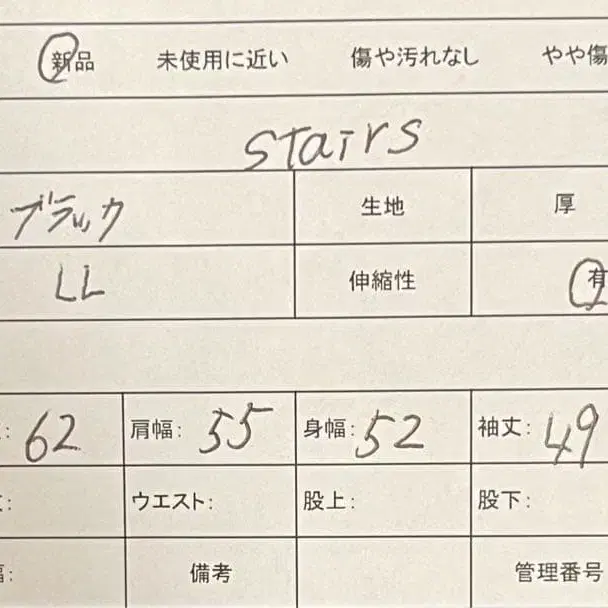 新品 未使用に近い 傷や汚れなし やや傷
stairs
ブラック 生地 厚
LL 伸縮性 有
: 62 肩幅: 55 身幅: 52 袖丈: 49
: ウエスト: 股上: 股下:
: 備考 管理番号